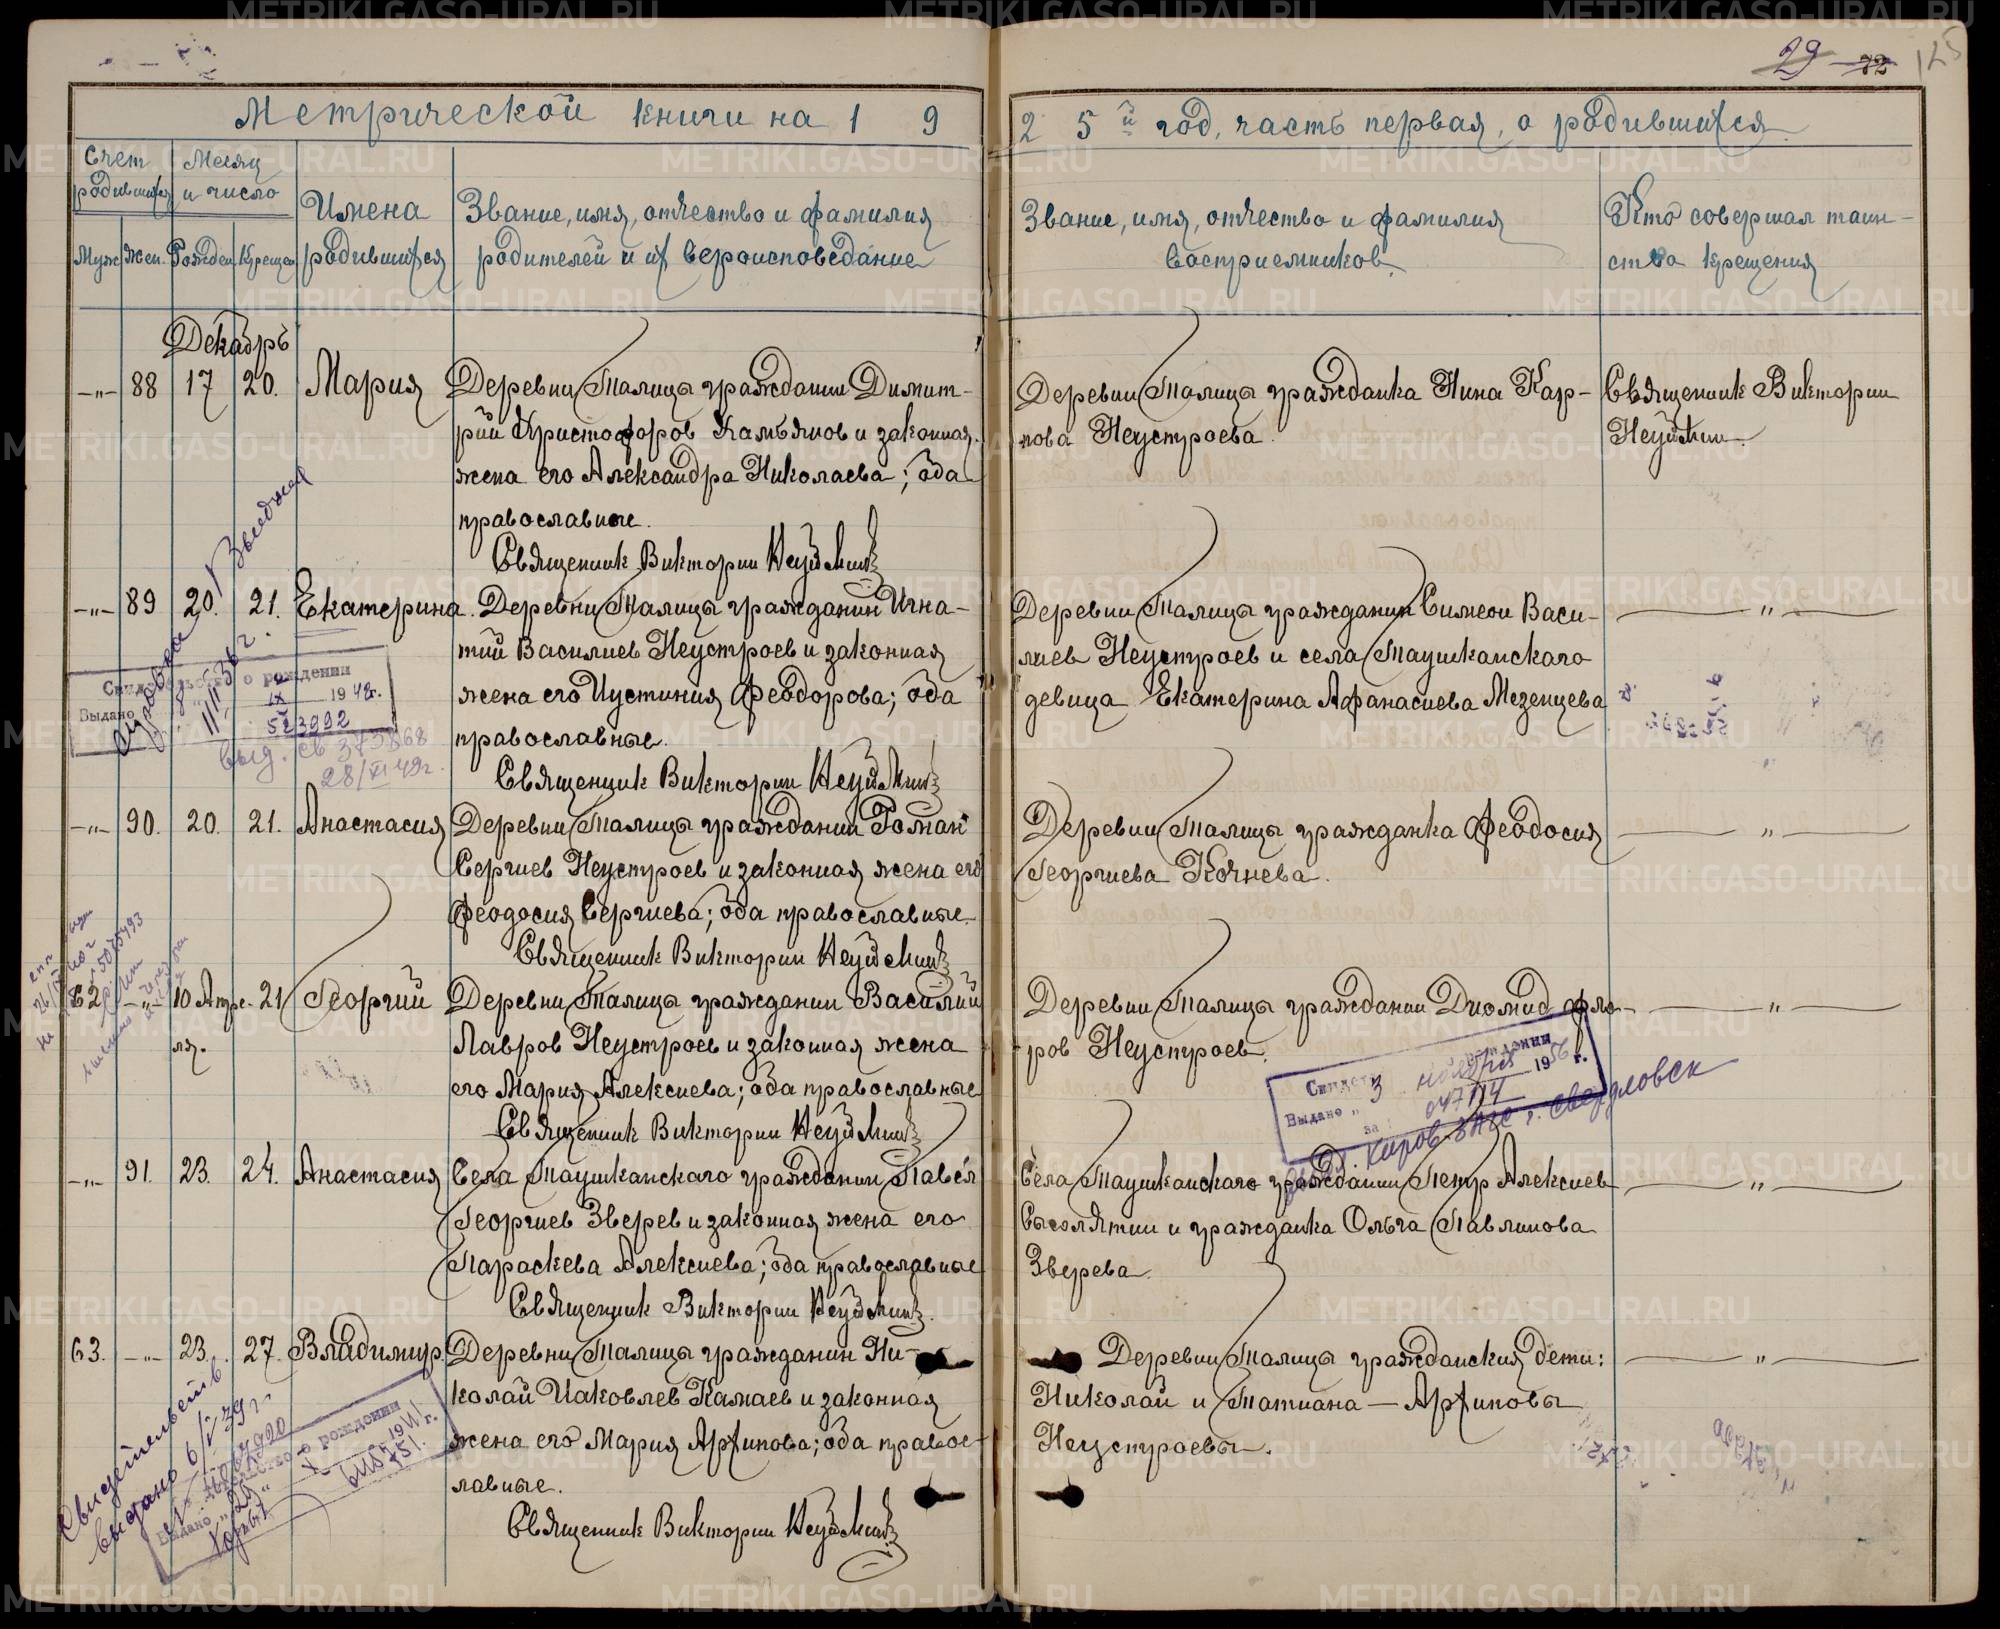 29 72 125
Метрической книги на 1 9 2 5 й год, часть первая, о родившихся
Счет родившихся
Месяц и число
Имена родившихся
Звание, имя, отчество и фамилия родителей и их вероисповедание
Звание, имя, отчество и фамилия восприемников.
Кто совершал таинства крещения
Муж. Жен. Рожден. Крещен.
Декабрь
—„— 88 17 20. Мария
Деревни Талицы гражданин Димит-
рий Христофоров Камъянов и законная
жена его Александра Николаева; оба
православные.
Священник Викторин Неуймин
Деревни Талицы гражданка Нина Кар-
пова Неустроева.
Священник Викторин
Неуймин.
—„— 89 20. 21. Екатерина.
Деревни Талицы гражданин Игна-
тий Василиев Неустроев и законная
жена его Иустиния Феодорова; оба
православные.
Священник Викторин Неуймин
Деревни Талицы гражданин Симеон Васи-
лиев Неустроев и села Таушканского
девица Екатерина Афанасиева Мезенцева
—„—
Свидетельство о рождении
Выдано IX 1948г.
523992
выд. св 375868
28/XI 49г.
11/II 36г.
—„— 90. 20. 21. Анастасия
Деревни Талицы гражданин Роман
Сергиев Неустроев и законная жена его
Феодосия Сергиева; оба православные.
Священник Викторин Неуймин
Деревни Талицы гражданка Феодосия
Георгиева Кочнева.
—„—
62 —„— 10 Апре- 21 Георгий
ля.
Деревни Талицы гражданин Василий
Лавров Неустроев и законная жена
его Мария Алексиева; оба православные
Священник Викторин Неуймин
Деревни Талицы гражданин Диомид Фло-
ров Неустроев.
—„—
Выдано „ 3 ноября 1956 г.
за 047114
Киров. ЗАГС г. Свердловск
—„— 91. 23. 24. Анастасия
Села Таушканского гражданин Павел
Георгиев Зверев и законная жена его
Параскева Алексиева; оба православные
Священник Викторин Неуймин.
Села Таушканского гражданин Петр Алексиев
Сысолятин и гражданка Ольга Павлинова
Зверева.
—„—
63. —„— 23. 27. Владимир.
Деревни Талицы гражданин Ни-
колай Иаковлев Камаев и законная
жена его Мария Архипова; оба правос-
лавные.
Священник Викторин Неуймин
Деревни Талицы гражданския дети:
Николай и Татиана — Архиповы
Неустроевы.
—„—
Свидетельств
выдано 6/I 39г.
о рождении
Выдано
METRIKI.GASO-URAL.RU